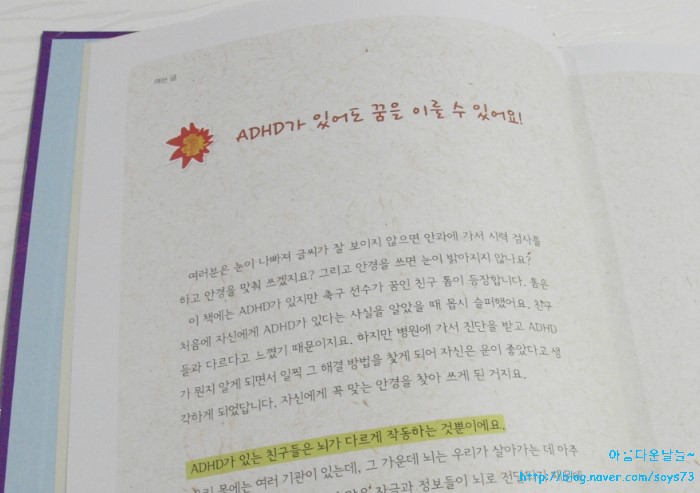 여는 글
ADHD가 있어도 꿈을 이룰 수 있어요!
여러분은 눈이 나빠져 글씨가 잘 보이지 않으면 안과에 가서 시력 검사를
하고 안경을 맞춰 쓰겠지요? 그리고 안경을 쓰면 눈이 밝아지지 않나요?
이 책에는 ADHD가 있지만 축구 선수가 꿈인 친구 톰이 등장합니다. 톰은
처음에 자신에게 ADHD가 있다는 사실을 알았을 때 몹시 슬퍼했어요. 친구
들과 다르다고 느꼈기 때문이지요. 하지만 병원에 가서 진단을 받고 ADHD
가 뭔지 알게 되면서 일찍 그 해결 방법을 찾게 되어 자신은 운이 좋았다고 생
각하게 되었답니다. 자신에게 꼭 맞는 안경을 찾아 쓰게 된 거지요.
ADHD가 있는 친구들은 뇌가 다르게 작동하는 것뿐이에요.
우리 몸에는 여러 기관이 있는데, 그 가운데 뇌는 우리가 살아가는 데 아주
자극과 정보들이 뇌로
아름다운날들~
http://blog.naver.com/soys73